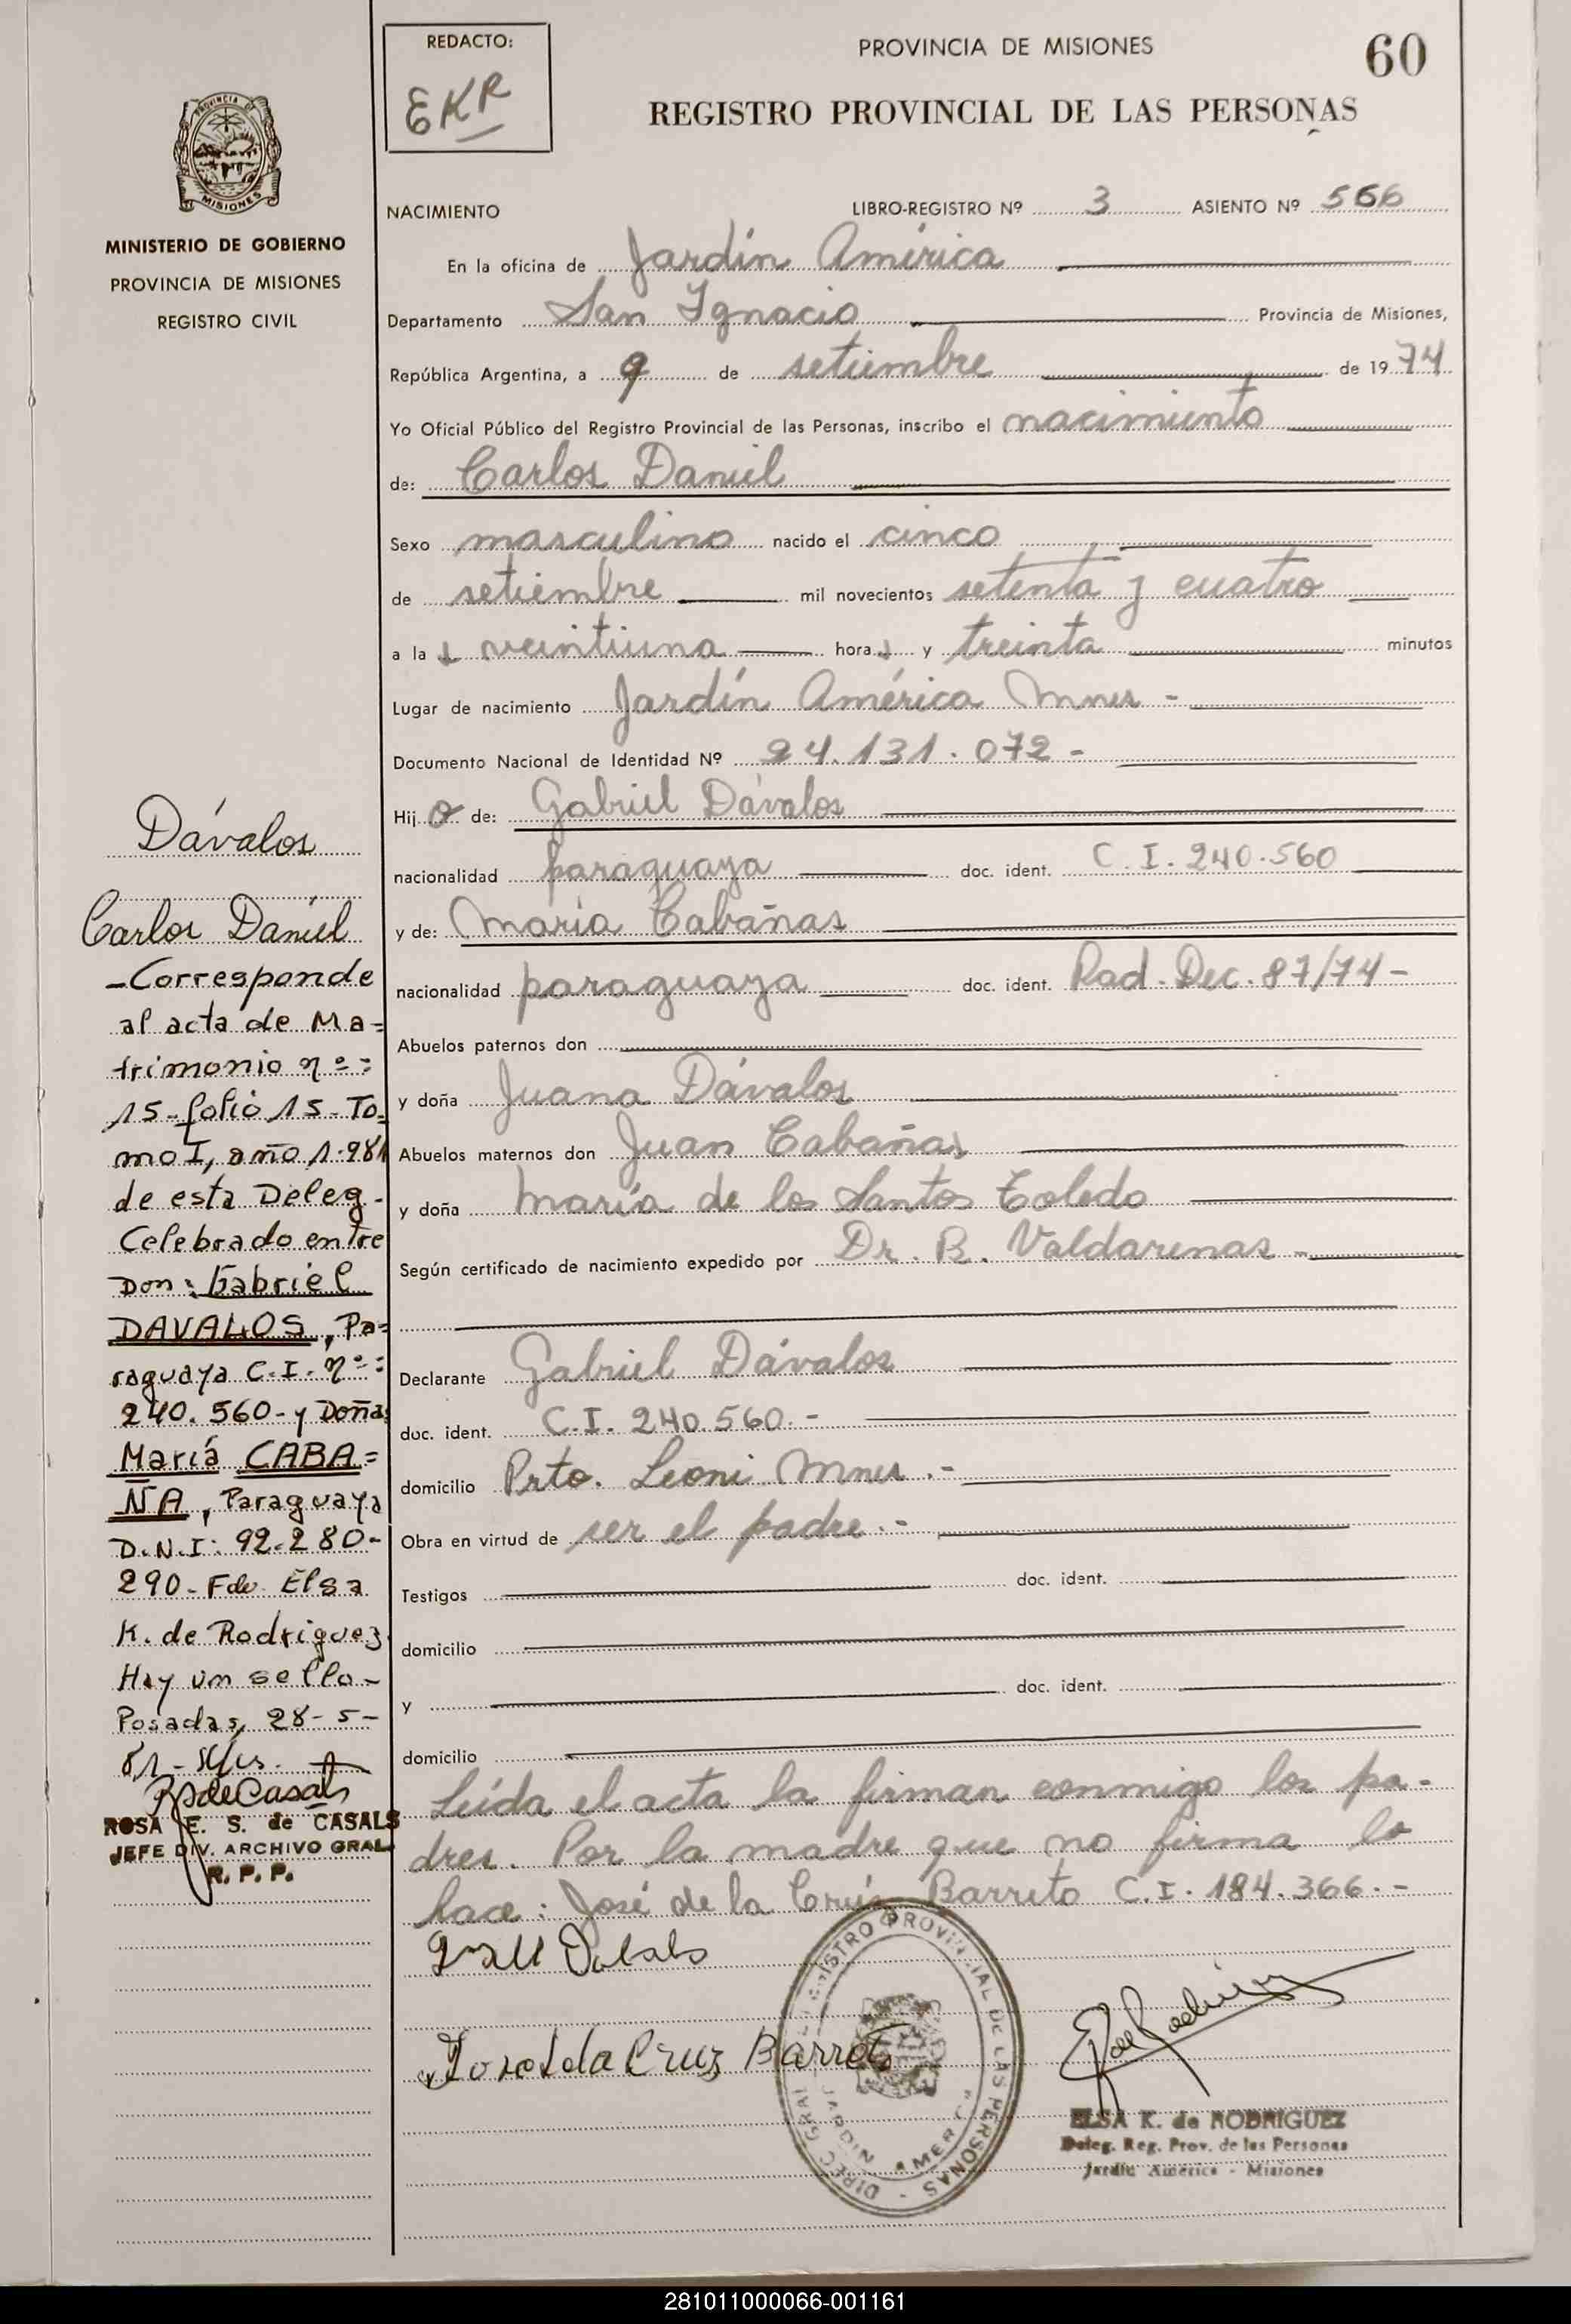 REDACTO:
EKR
PROVINCIA DE MISIONES
60
REGISTRO PROVINCIAL DE LAS PERSONAS
PROVINCIA DE
MISIONES
MINISTERIO DE GOBIERNO
PROVINCIA DE MISIONES
REGISTRO CIVIL
NACIMIENTO LIBRO-REGISTRO Nº 3 ASIENTO Nº 566
En la oficina de Jardín América
Departamento San Ignacio Provincia de Misiones,
República Argentina, a 9 de setiembre de 1974
Yo Oficial Público del Registro Provincial de las Personas, inscribo el nacimiento
de: Carlos Daniel
Sexo masculino nacido el cinco
de setiembre mil novecientos setenta y cuatro
a la s veintiuna hora s y treinta minutos
Lugar de nacimiento Jardín América Mnes -
Documento Nacional de Identidad Nº 24.131.072 -
Hijo de: Gabriel Dávalos
nacionalidad paraguaya doc. ident. C.I. 240.560
y de: María Cabañas
nacionalidad paraguaya doc. ident. Rad. Dec. 87/74 -
Abuelos paternos don
y doña Juana Dávalos
Abuelos maternos don Juan Cabañas
y doña María de los Santos Toledo
Según certificado de nacimiento expedido por Dr. B. Valdarenas -
Declarante Gabriel Dávalos
doc. ident. C.I. 240.560.-
domicilio Prto. Leoni Mnes.-
Obra en virtud de ser el padre.-
Testigos doc. ident.
domicilio
y doc. ident.
domicilio
Leída el acta la firman conmigo los pa-
dres. Por la madre que no firma lo
hace: José de la Cruz Barreto C.I. 184.366.-
Jose de la Cruz Barreto
DIREC. GRAL. REGISTRO PROVINCIAL DE LAS PERSONAS -
JARDIN AMERICA
ELSA K. de RODRIGUEZ
Deleg. Reg. Prov. de las Personas
Jardín América - Misiones
Dávalos
Carlos Daniel
-Corresponde
al acta de Ma=
trimonio nº=
15-folio 15-To=
mo I, año 1.981
de esta Deleg.
Celebrado entre
Don: Gabriel
DAVALOS, Pa=
raguaya C.I. nº=
240.560-y Doña
María CABA=
ÑA, Paraguaya
D.N.I: 92.280-
290-Fdo. Elsa
K. de Rodriguez
Hay un sello-
Posadas, 28-5-
81-
RSdeCasals
ROSA E. S. de CASALS
JEFE DIV. ARCHIVO GRAL
R. P. P.
281011000066-001161